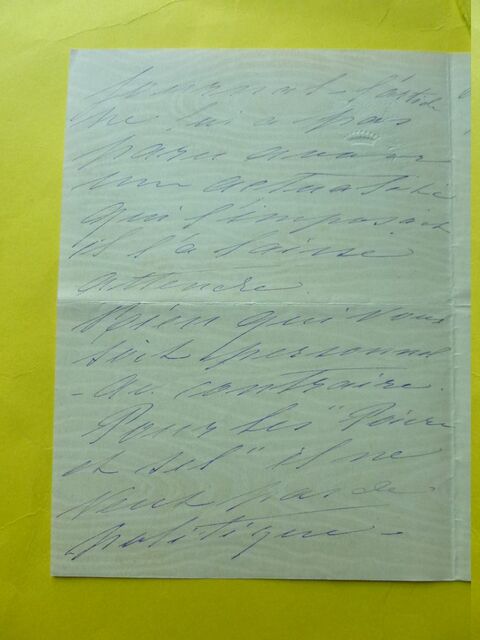 journal - l'article
ne lui a pas
paru avoir
une actualité
qui s'imposait
il l'a laissé
attendre.
Rien qui vous
soit personnel
- au contraire.
Pour les "Poivre
et sel" il ne
veut pas de
politique -